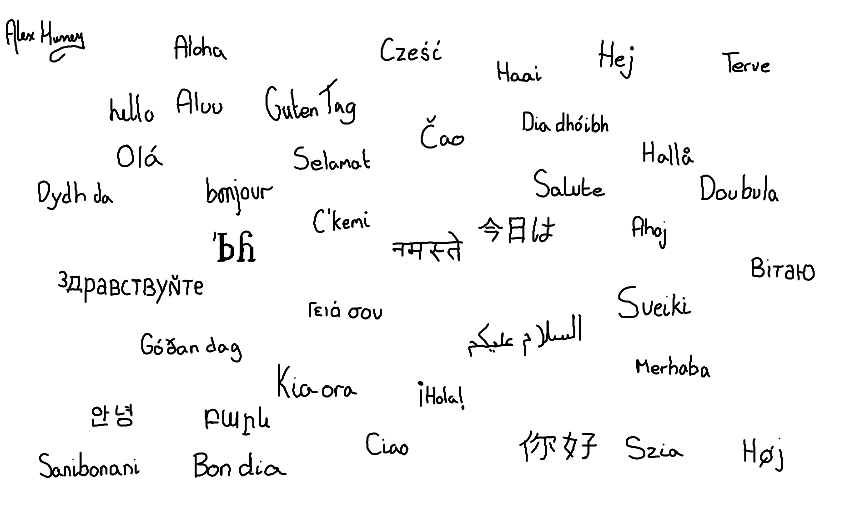 Alex Huney
Aloha
Cześć
Haai
Hej
Terve
hello
Aluu
Guten Tag
Čao
Dia dhóibh
Hallå
Olá
Selamat
Dydh da
bonjour
Salute
Doubula
C'kemi
नमस्ते
今日は
Ahoj
Вітаю
Здравствуйте
Γειά σου
Sveiki
السلام عليكم
Góðan dag
Merhaba
Kia-ora
¡Hola!
안녕
Բարև
Ciao
你好
Szia
Høj
Sanibonani
Bon dia